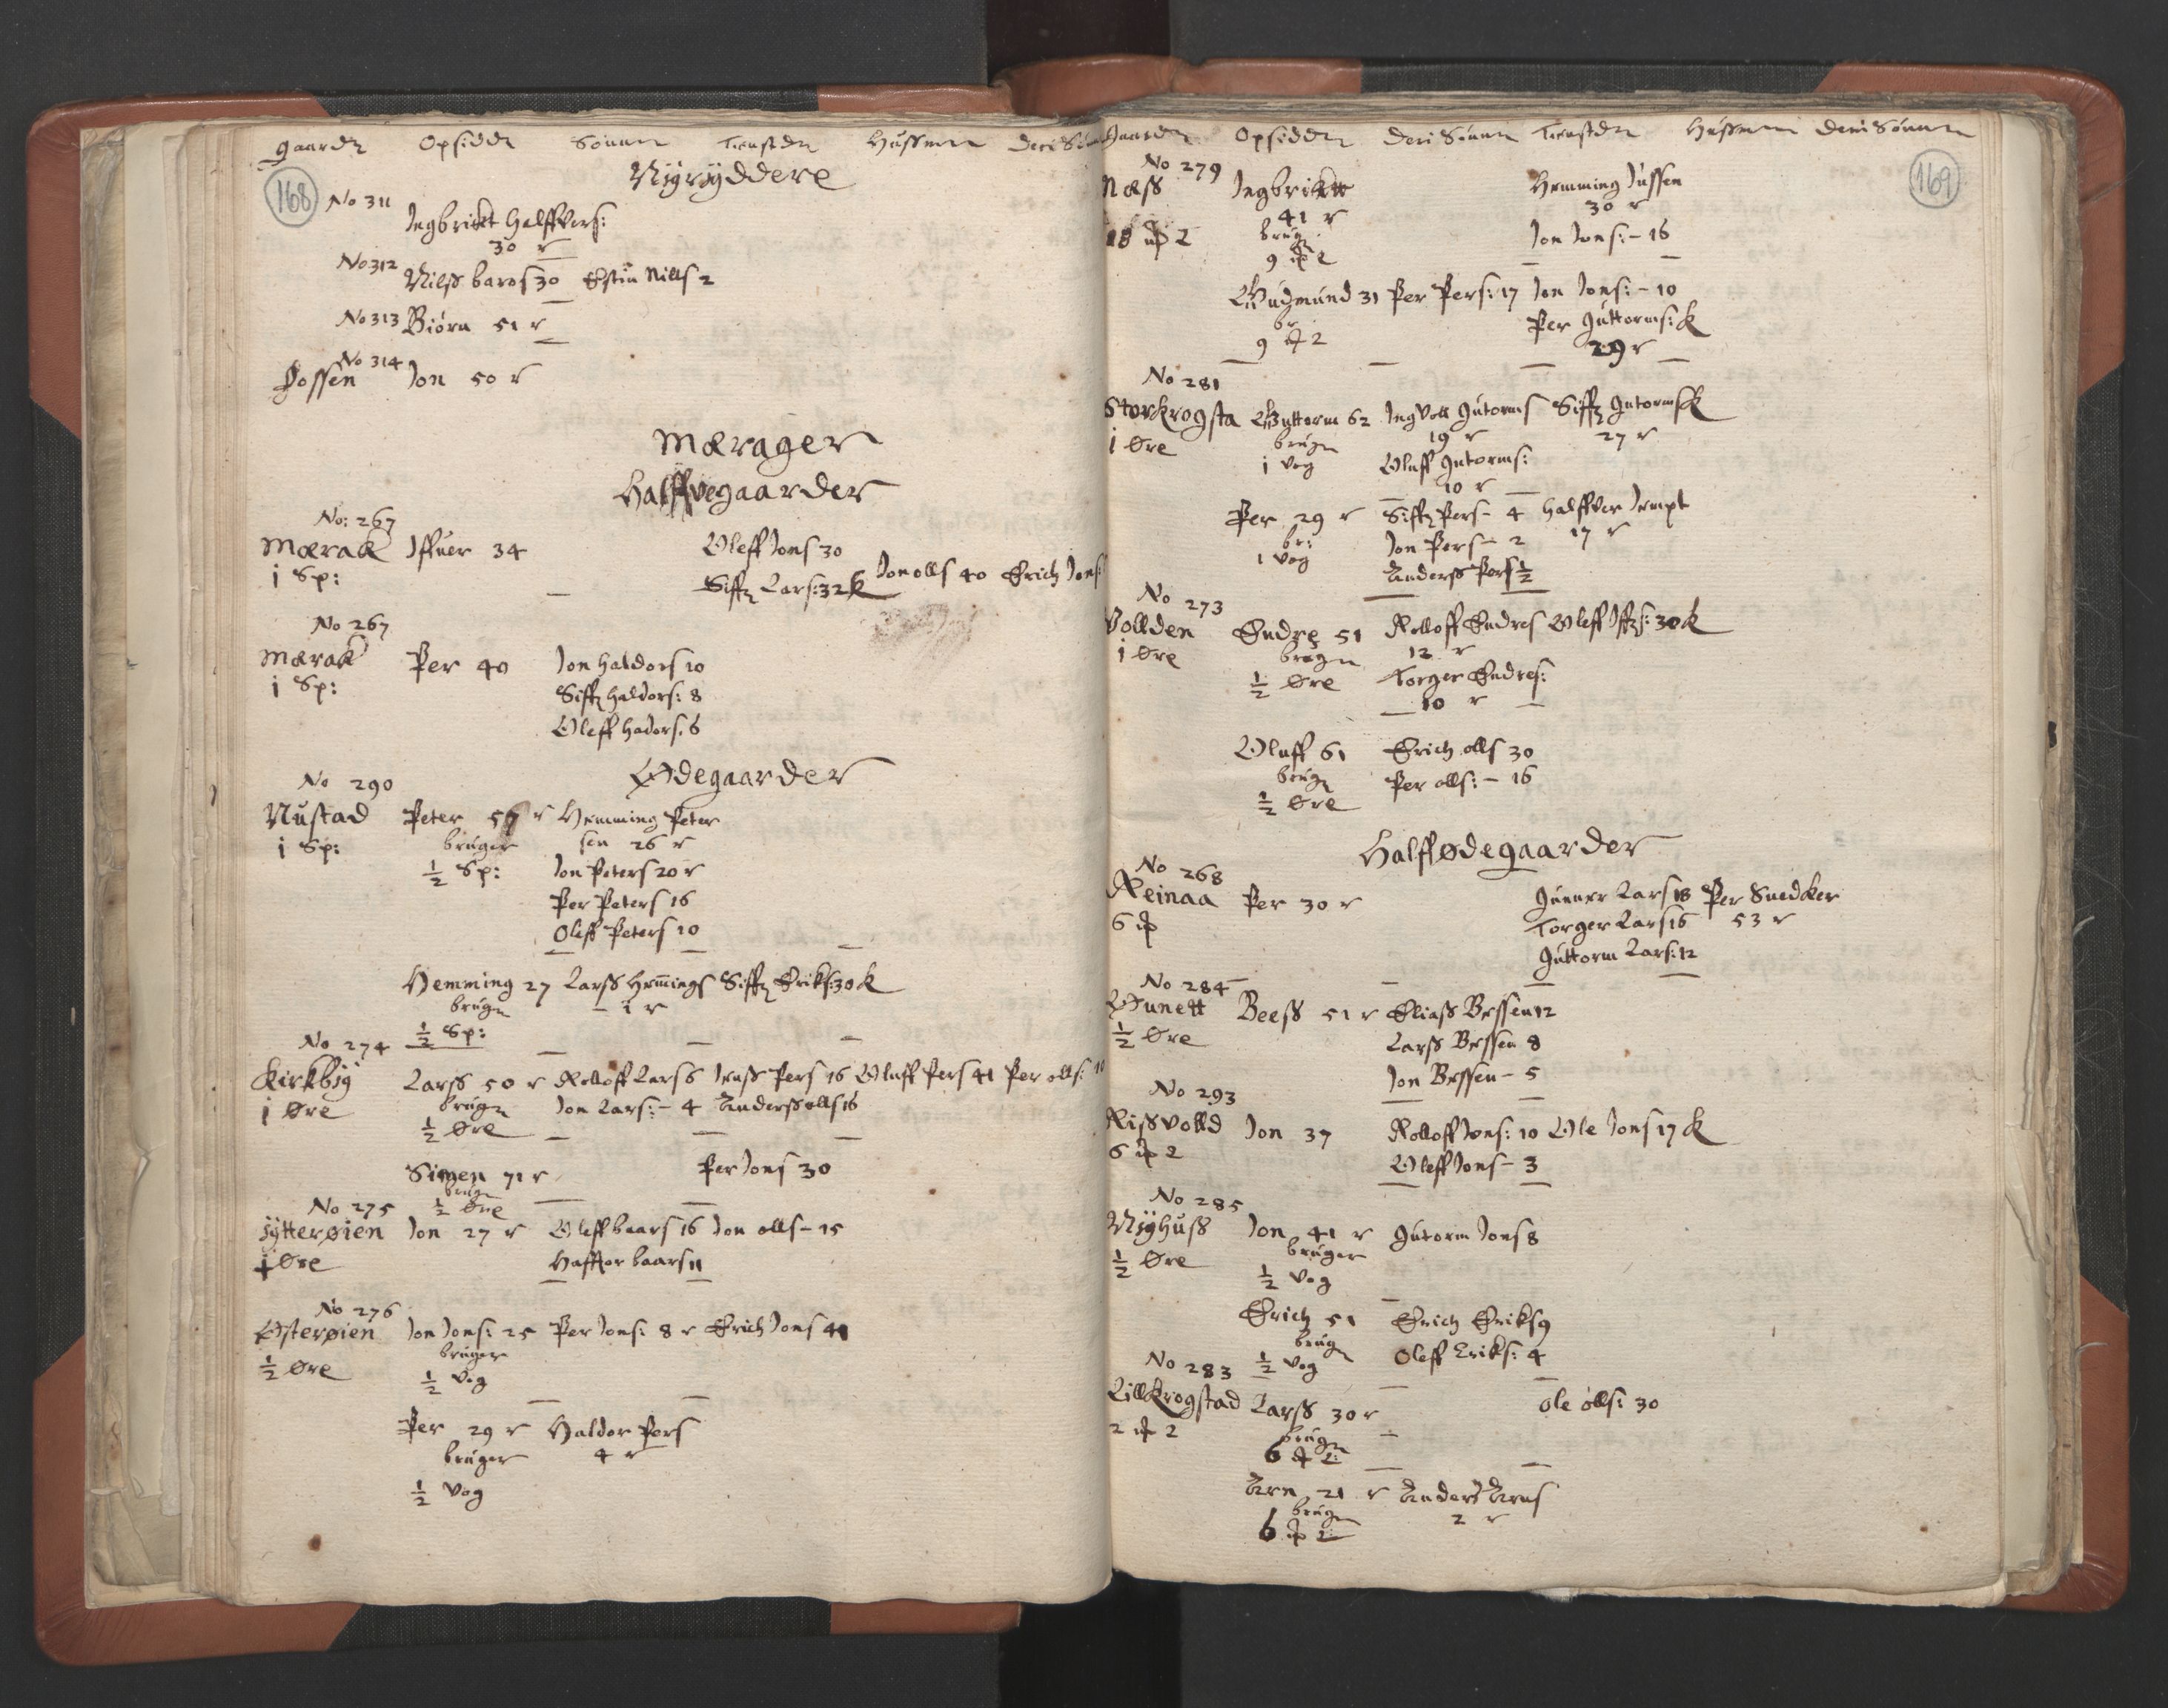 gaarde Opsidde Sønner Tienstde Hussmen Deris Sønn
168
Nÿrÿddere
No 311
Ingbrickt Halffvors:
30 r
No 312
Nilss baros 30 Estin Nills 2
No 313 Biørn 51 r
No 314
Fossen Jon 50 r
Mærager
Halffvegaarder
No: 267
Mærak Iffuer 34 Oleff Jons 30
1 Sp: Siff Lars: 32 K Jon olls 40 Erich Jons:
No 267
Mærak Per 40 Jon Haldors 10
1 Sp: Siff Haldors: 8
Oleff Hadors. 6
Ødegaarder
No 290
Nustad Peter 5 r Hemming Peter
1 Sp: bruger sen 26 r
½ Sp: Jon Peters 20 r
Per Peters 16
Oleff Peters 10
Hemming 27 Larss Hemings Siff Eriks: 30 K
bruger 1 r
½ Sp:
No 274
Kirkbÿ Larss 50 r Rolloff Lars 6 Jenss Pers 16 Oluff Pers 41 Per olls: 10
1 Øre bruger Jon Lars: - 4 Anderss olls 16
½ Øre
Simen 71 r Per Jons 30
bruger
½ Øre
No 275
ÿtterøien Jon 27 r Oleff baars 16 Jon olls - 15
1 Øre Haffor baars 11
No 276
Østerøien Jon Jons: 25 Per Jons: 8 r Erich Jons 41
½ Øre bruger
½ Vog
Per 29 r Haldor Pers
bruger 4 r
½ Vog
Gaarde Opsidde Deris Sønn Tienstde Hussmen Deris Sønner
169
No 279
Næss Ingbrictt Hemming Jussen
41 r 30 r
18 # 2 bruger Jon Jons: - 16
9 # 2
Gudmund 31 Per Pers: 17 Jon Jons: - 10
br Per Guttorms: K
9 # 2 29 r
No 281
Storkrogsta Guttorm 62 Ingvoll Gutorms Siff Gutorms K
1 Øre bruger 19 r 27 r
1 Vog Oluff Gutorms:
10 r
Per 29 r Siff Pers - 4 Halffvor Jempt
br: Jon Pers - 2 17 r
1 Vog Anderss Pers ½
No 273
Vollden Endre 51 Rolloff Endres Oleff Iffs: 30 K
1 Øre bruger 12 r
½ Øre Torger Endres:
10 r
Oluff 61 Erich olls 30
bruger Per olls: - 16
½ Øre
Halffødegaarder
No 268
Reinaa Per 30 r Gunner Lars 18 Per Snedker
6 # Torger Lars 16 53 r
Guttorm Lars: 12
No 284
Øunett Beess 51 r Eliass Bessen 12
½ Øre Larss Bessen 8
Jon Bessen - 5
No 293
Rissvolld Jon 37 Rolloff Jons: 10 Ole Jons 17 K
6 # 2 Oleff Jons - 3
No 285
Nÿhuss Jon 41 r Gutorm Jons 8
½ Øre bruger
½ Vog
Erich 51 Erich Eriks 9
bruger Oleff Eriks: 4
½ Vog
No 283
Lillkrogstad Larss 30 r Ole olls: 30
2 # 2 bruger
6 # 2:
Arn 21 r Anders Arns
bruger 2 r
6 # 2